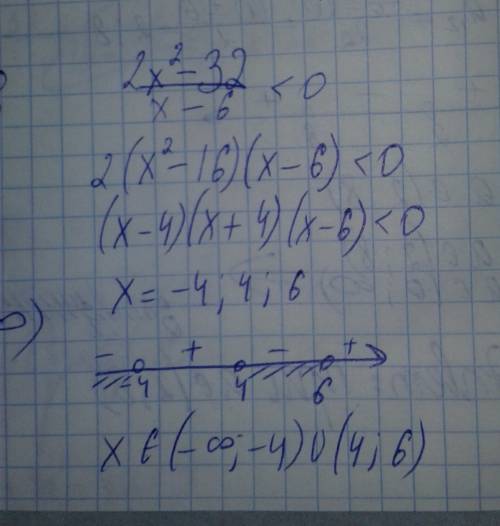 2x² - 32
x - 6
< 0
2(x² - 16)(x - 6) < 0
(x - 4)(x + 4)(x - 6) < 0
x = -4; 4; 6
- + - +
-4 4 6
x ∈ (-∞; -4) ∪ (4; 6)